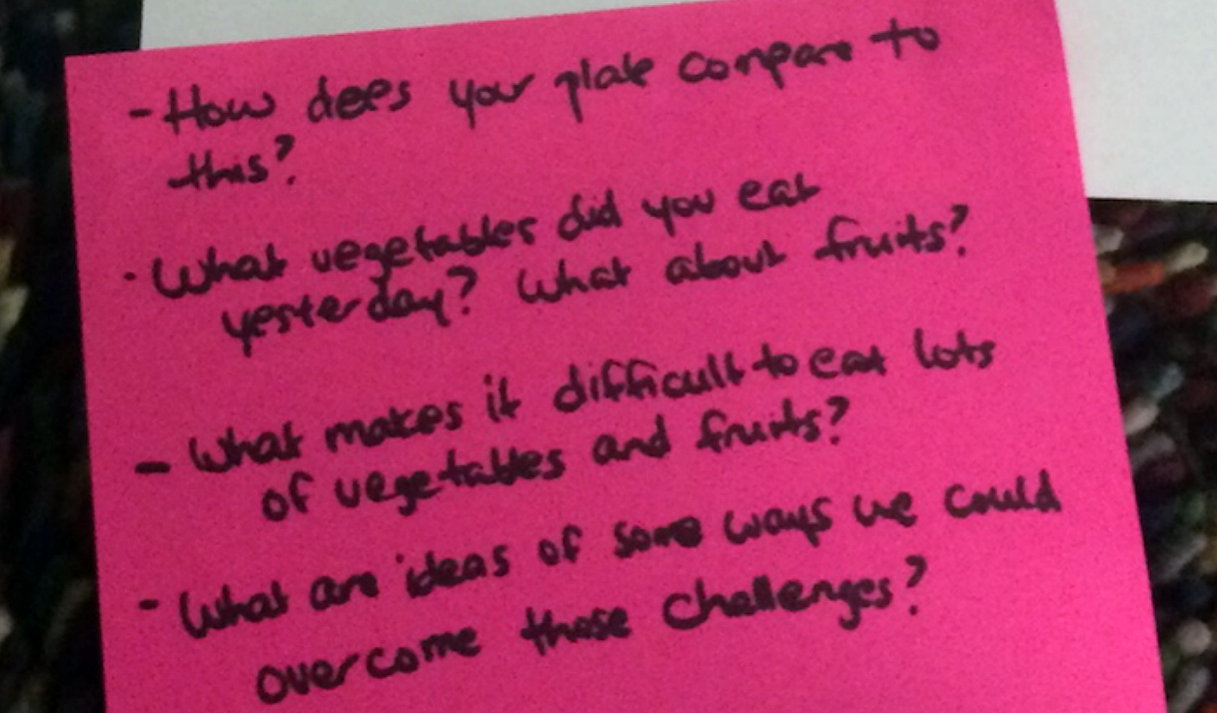 - How does your plate compare to
this?
- What vegetables did you eat
yesterday? What about fruits?
- What makes it difficult to eat lots
of vegetables and fruits?
- What are ideas of some ways we could
overcome those challenges?